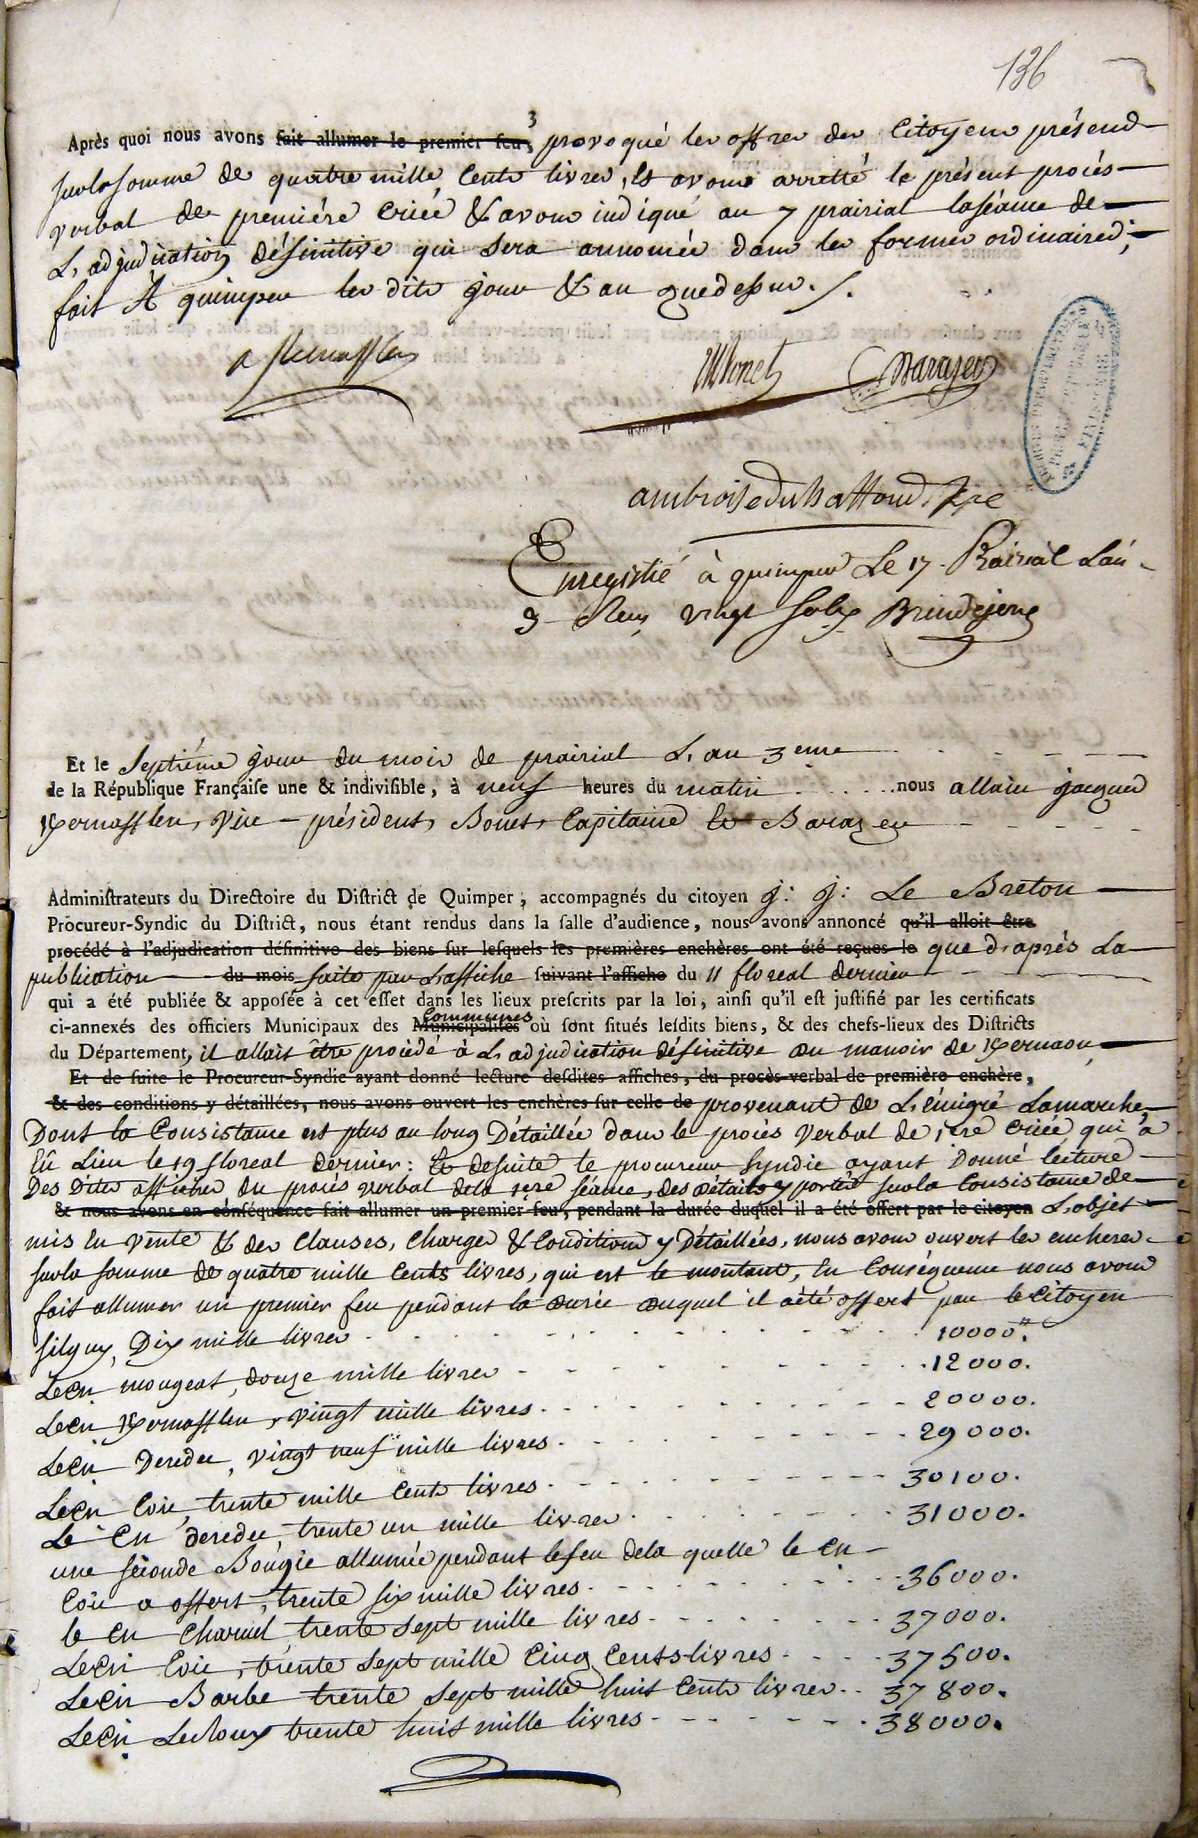 136
3
Après quoi nous avons fait allumer le premier feu, provoqué les offres des Citoyens présens
sur la somme de quatre mille Cents livres, Et avons arretté le présent procés
verbal de premiére Criée & avons indiqué au 7 prairial la séance de
L'adjudication définitive qui sera annoncée dans les formes ordinaires;
fait A quimper les dits jour & an que dessus ./.
Bonet
Barazer
ambroise duhaffond
Enregistré à quimper Le 17 Prairial L'an
3 Reçu vingt Sols Brindejonc
Et le Septiéme jour du mois de prairial L'an 3 eme
de la République Française une & indivisible, à neuf heures du matin nous allain jacques
Kernafflen, vice-président, Bonet, Capitaine le Barazer
Administrateurs du Directoire du District de Quimper, accompagnés du citoyen J: J: Le Breton
Procureur-Syndic du District, nous étant rendus dans la salle d'audience, nous avons annoncé qu'il alloit être
procédé à l'adjudication définitive des biens sur lesquels les premières enchères ont été reçues le que d'après La
publication du mois faite par L'affiche suivant l'affiche du 11 floreal dernier
qui a été publiée & apposée à cet effet dans les lieux prescrits par la loi, ainsi qu'il est justifié par les certificats
Communes
ci-annexés des officiers Municipaux des Municipalités où sont situés lesdits biens, & des chefs-lieux des Districts
du Département, il allait être procédé à L'adjudication définitive du manoir de Kernaou
Et de suite le Procureur-Syndic ayant donné lecture desdites affiches, du procès-verbal de première enchère,
& des conditions y détaillées, nous avons ouvert les enchères sur celle de provenant de L'émigré Lamarche,
Dont la Consistance est plus au long Détaillée dans le procés verbal de 1ere Criée qui a
Eû Lieu le 19 floreal dernier: Et desuite le procureur Syndic ayant Donné lecture
Des Dites affiches du procés verbal dela 1ere séance, des détails y portés sur la Consistance de
& nous avons en conséquence fait allumer un premier feu, pendant la durée duquel il a été offert par le citoyen L'objet
mis En vente & des Clauses, Charges & Conditions y Détaillées, nous avons ouvert les encheres
sur la somme de quatre mille Cents livres, qui est le montant, En Conséquence nous avons
fait allumer un premier feu pendant la durée duquel il a été offert par le Citoyen
silguy, Dix mille livres 10000."
Le Cn mougeat, douze mille livres 12000.
Le Cn Kernafflen, vingt mille livres 20000.
Le Cn Deredec, vingt neuf mille livres 29000.
Le Cn Coïc, trente mille Cents livres 30100.
Le Cn deredec, trente un mille livres 31000.
une séconde Bougie allumée pendant le feu dela quelle le Cn
Coïc a offert, trente six mille livres 36000.
le Cn Charuel trente sept mille livres 37000.
Le Cn Coïc, trente sept mille Cinq Cents livres 37500.
Le Cn Barbe trente sept mille huit Cents livres 37800.
Le Cn Lecloux trente huit mille livres 38000.